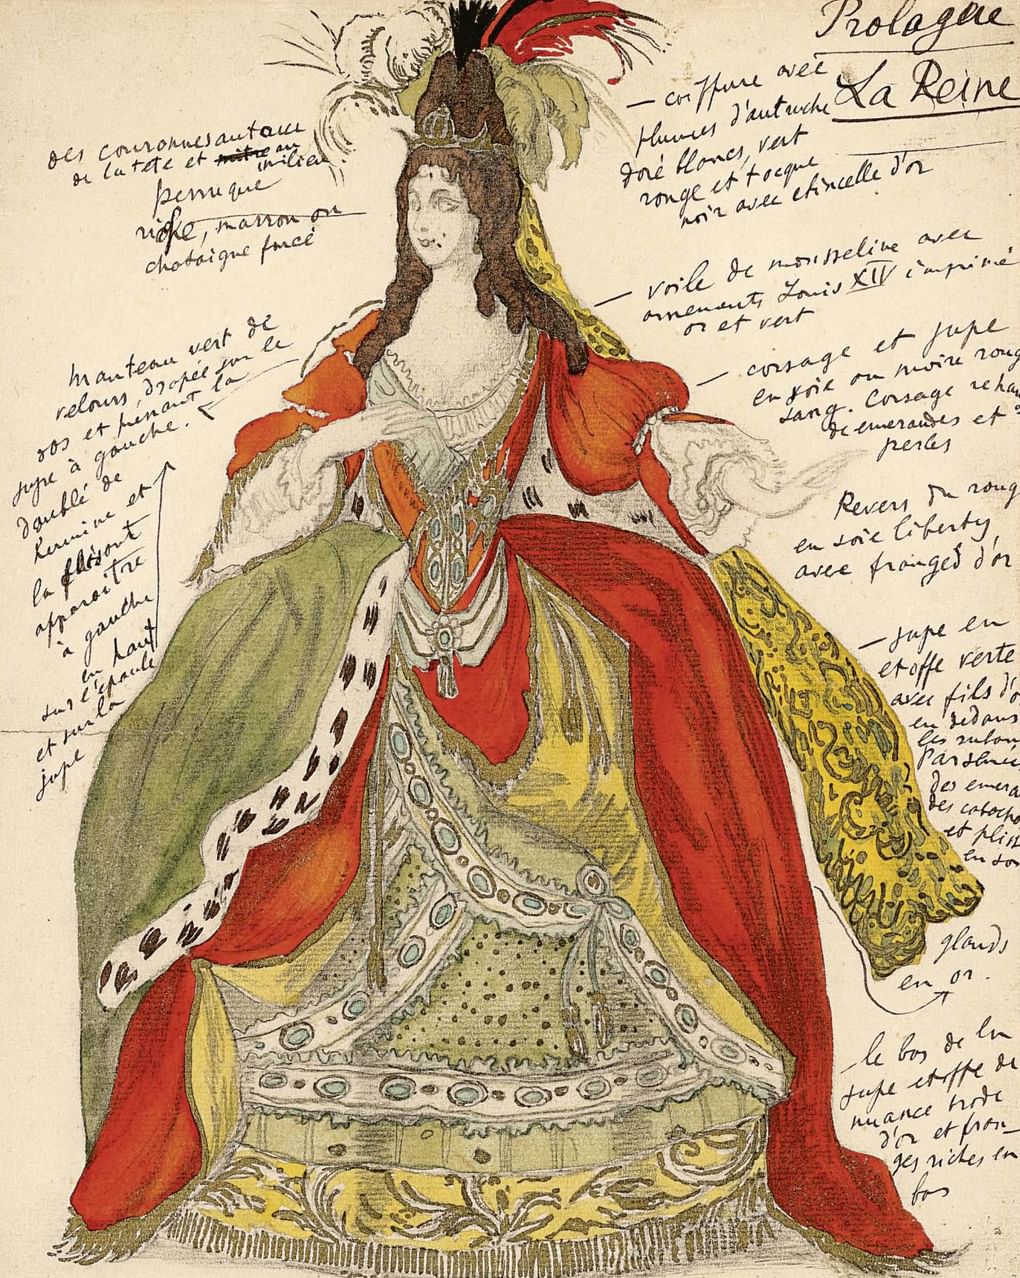 Prologue
La Reine
— coiffure avec
plumes d'autruche
doré blancs, vert
rouge et tocque
noir avec etincelle d'or
des couronnes autour
de la tête et mitre au
milieu
perruque
riche, marron ou
chataigne foncé
— voile de mousseline avec
ornements Louis XIV imprimé
or et vert
— corsage et jupe
en soie ou moire rouge
sang. Corsage reha
de emeraudes et
perles
manteau vert de
velours, drapée sur le
dos et prenant la
jupe à gauche.
doublé de
hermine et
la faisant
apparaître
à gauche
en haut
sur l'épaule
et sur la
jupe
Revers du rouge
en soie liberty
avec franges d'or
— jupe en
etoffe verte
avec fils d'o
en dedans
les ruban
Parsemé
des emera
des cabocho
et pliss
en
glands
en or.
— le bas de la
jupe etoffe de
nuance brodé
d'or et fran-
ges riches en
bas